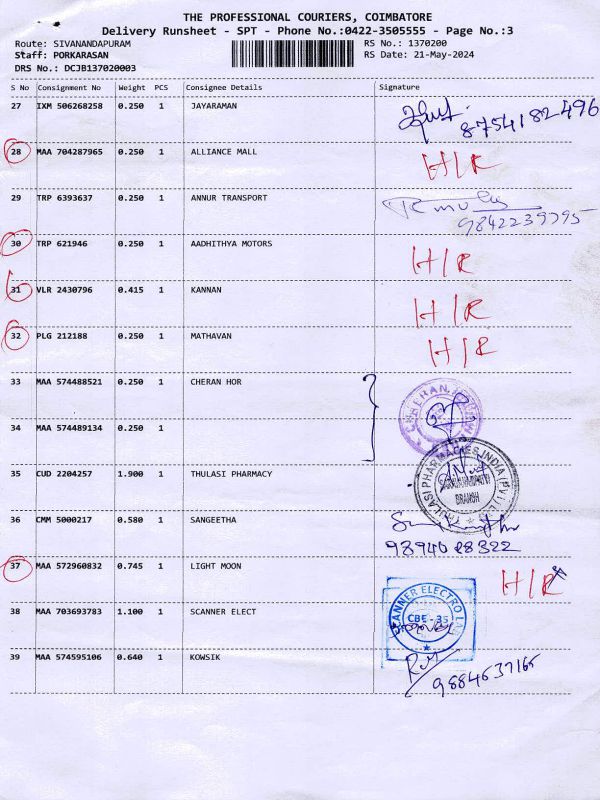 THE PROFESSIONAL COURIERS, COIMBATORE
Delivery Runsheet - SPT - Phone No.:0422-3505555 - Page No.:3
Route: SIVANANDAPURAM RS No.: 1370200
Staff: PORKARASAN RS Date: 21-May-2024
DRS No.: DCJB137020003
S No Consignment No Weight PCS Consignee Details Signature
27 IXM 506268258 0.250 1 JAYARAMAN
8754182496
28 MAA 704287965 0.250 1 ALLIANCE MALL H/R
29 TRP 6393637 0.250 1 ANNUR TRANSPORT
9842239795
30 TRP 621946 0.250 1 AADHITHYA MOTORS H/R
31 VLR 2430796 0.415 1 KANNAN H/R
32 PLG 212188 0.250 1 MATHAVAN H/R
33 MAA 574488521 0.250 1 CHERAN HOR
34 MAA 574489134 0.250 1
35 CUD 2204257 1.900 1 THULASI PHARMACY
THULASI PHARMACIES INDIA (PVT) LTD
BRANCH
36 CMM 5000217 0.580 1 SANGEETHA
37 MAA 572960832 0.745 1 LIGHT MOON H/R
38 MAA 703693783 1.100 1 SCANNER ELECT
SCANNER ELECTRO LAB
CBE - 35
39 MAA 574595106 0.640 1 KOWSIK